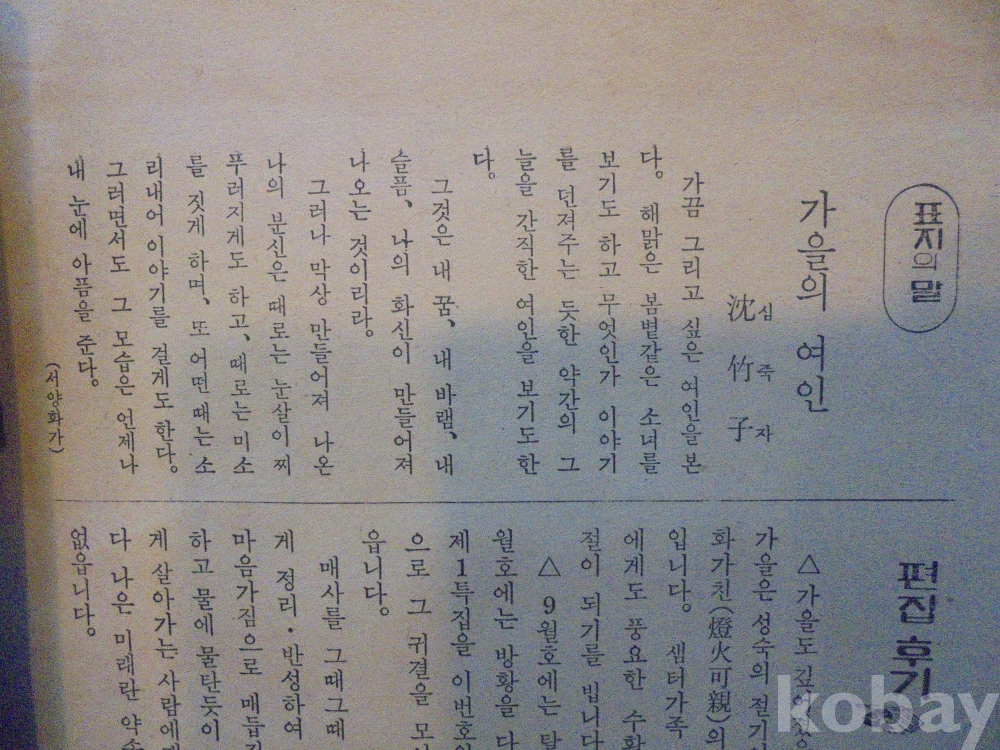 표지의 말
가을의 여인
沈竹子
심죽자
가끔 그리고 싶은 여인을 본
다. 해맑은 봄볕같은 소녀를
보기도 하고 무엇인가 이야기
를 던져주는 듯한 약간의 그
늘을 간직한 여인을 보기도한
다.
그것은 내 꿈, 내 바램, 내
슬픔, 나의 화신이 만들어져
나오는 것이리라.
그러나 막상 만들어져 나온
나의 분신은 때로는 눈살이 찌
푸러지게도 하고, 때로는 미소
를 짓게 하며, 또 어떤때는 소
리내어 이야기를 걸게도 한다.
그러면서도 그 모습은 언제나
내 눈에 아픔을 준다.
(서양화가)
편집 후기
△가을도 깊어
가을은 성숙의 절기
화가친(燈火可親)의
입니다. 샘터가족
에게도 풍요한 수확
절이 되기를 빕니다
△9월호에는 탈
월호에는 방황을 다
제1특집을 이번호
으로 그 귀결을 모
읍니다.
매사를 그때그때
게 정리·반성하여
마음가짐으로 매듭
하고 물에 물탄듯이
게 살아가는 사람에게
다 나은 미래란 약속
없읍니다.
kobay